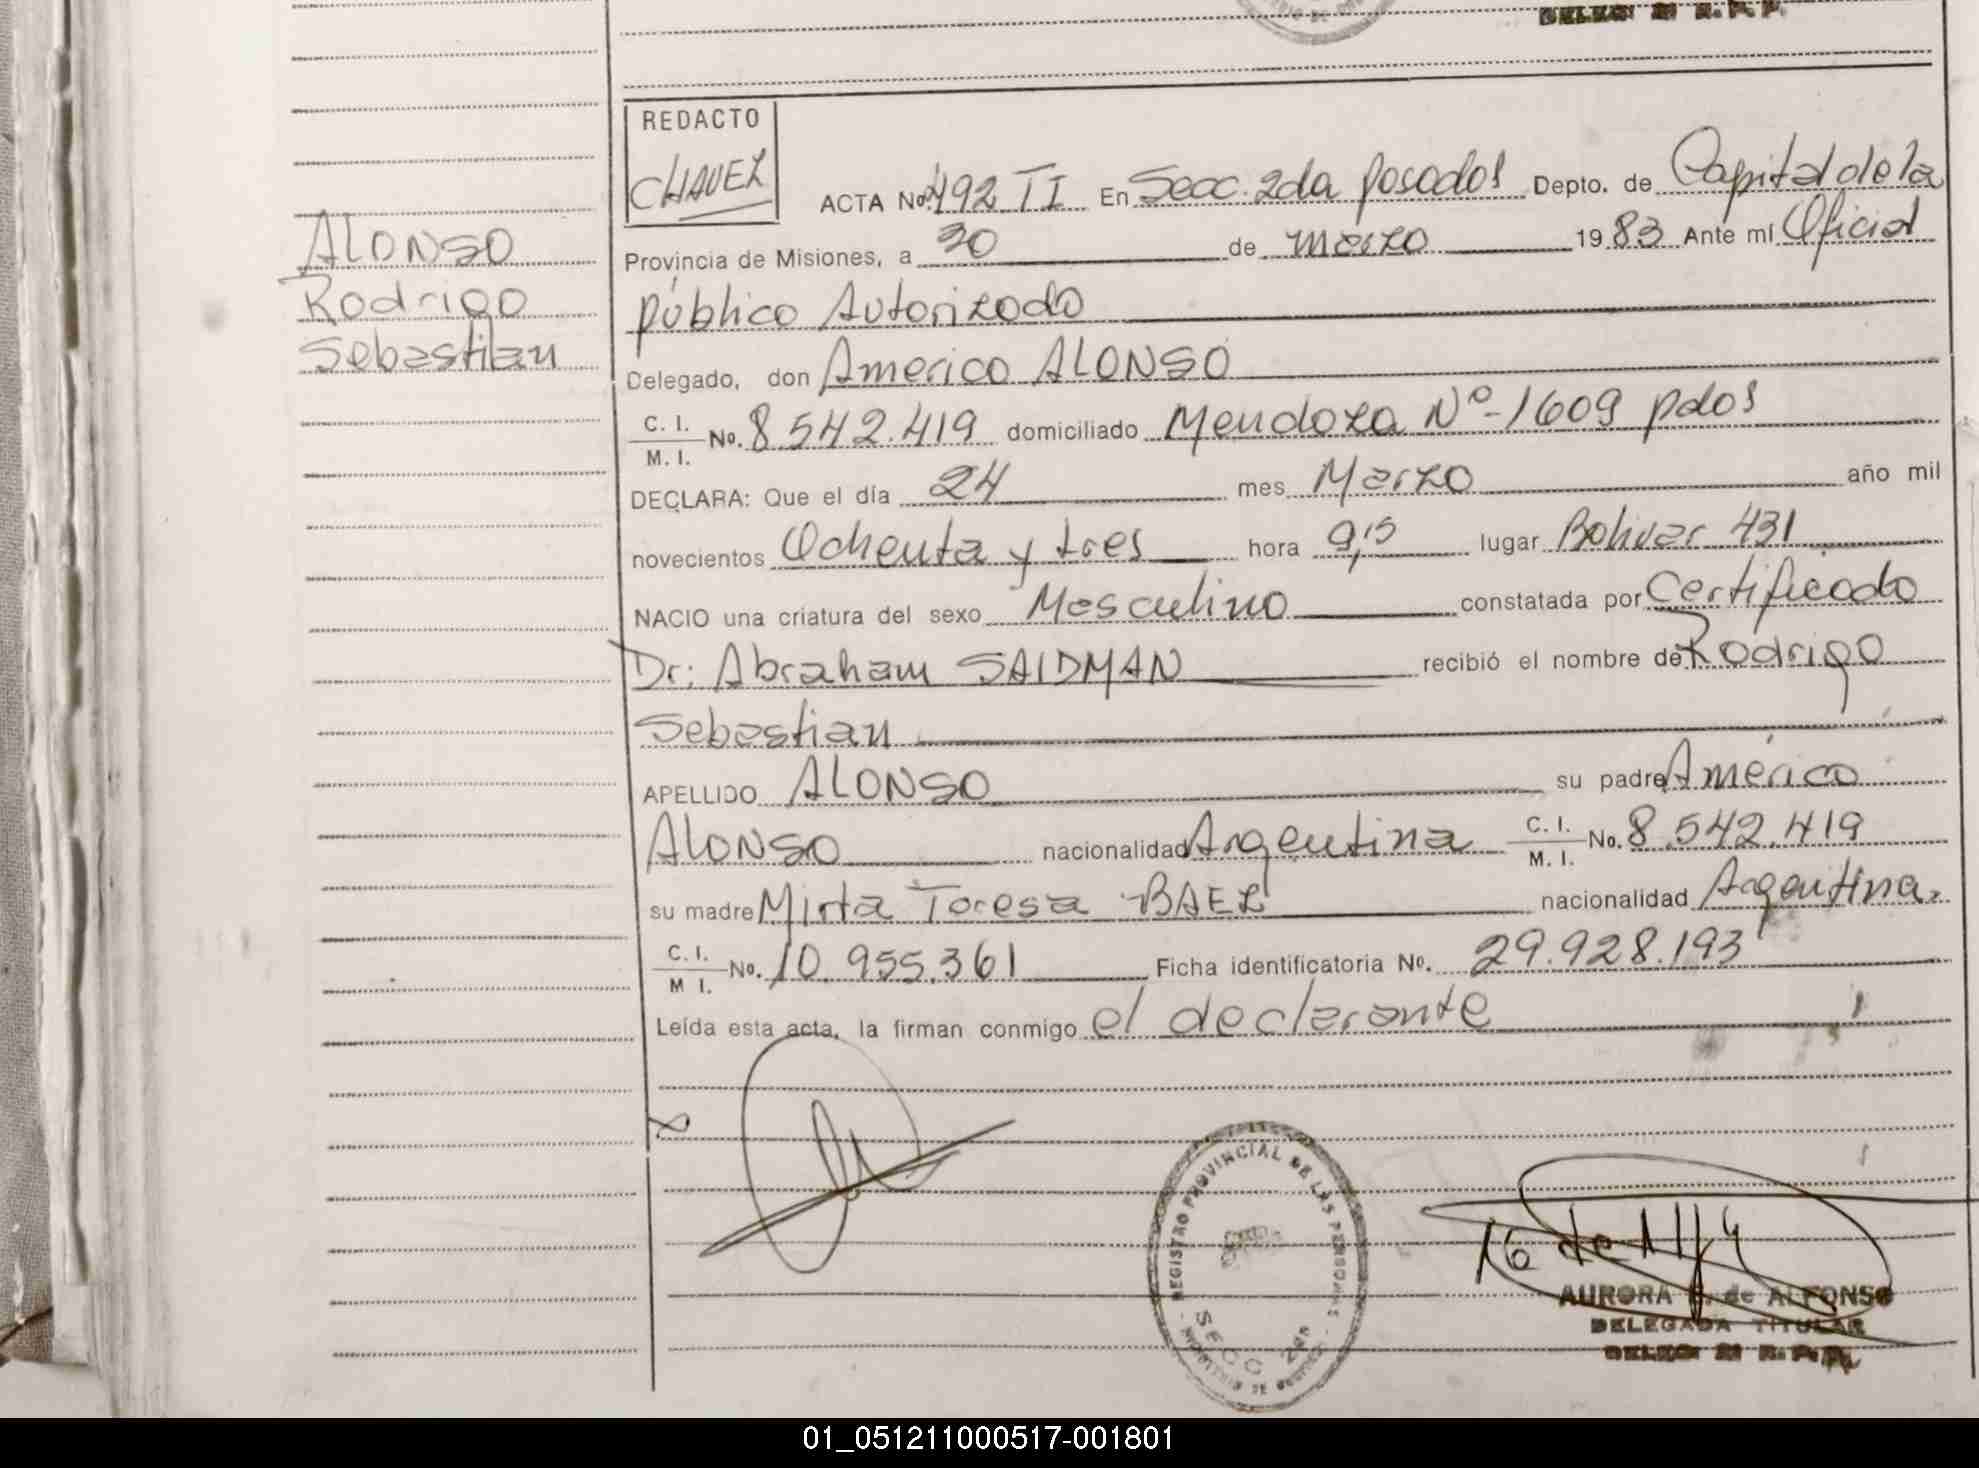 DELEG. 2ª R.P.P.
REDACTO
CHAVEZ
ACTA No. 492 TI En Secc. 2da posadas Depto. de Capital de la
Provincia de Misiones, a 30 de marzo 1983 Ante mí Oficial
público Autorizado
Delegado, don Americo ALONSO
C. I.
M. I.
No. 8.542.419 domiciliado Mendoza Nº-1609 pdas
DECLARA: Que el día 24 mes Marzo año mil
novecientos Ochenta y tres hora 9,15 lugar Bolivar 431
NACIO una criatura del sexo Masculino constatada por Certificado
Dr: Abraham SAIDMAN recibió el nombre de Rodrigo
Sebastian
APELLIDO ALONSO su padre Américo
ALONSO nacionalidad Argentina C. I. M. I. No. 8.542.419
su madre Mirta Teresa BAEZ nacionalidad Argentina
C. I. M I. No. 10.955.361 Ficha identificatoria No. 29.928.193
Leída esta acta, la firman conmigo el declarante
ALONSO
Rodrigo
Sebastian
REGISTRO PROVINCIAL DE LAS PERSONAS
SECC 2da
AURORA de ALFONSO
DELEGADA TITULAR
DELEG. 2ª R.P.P.
01_051211000517-001801